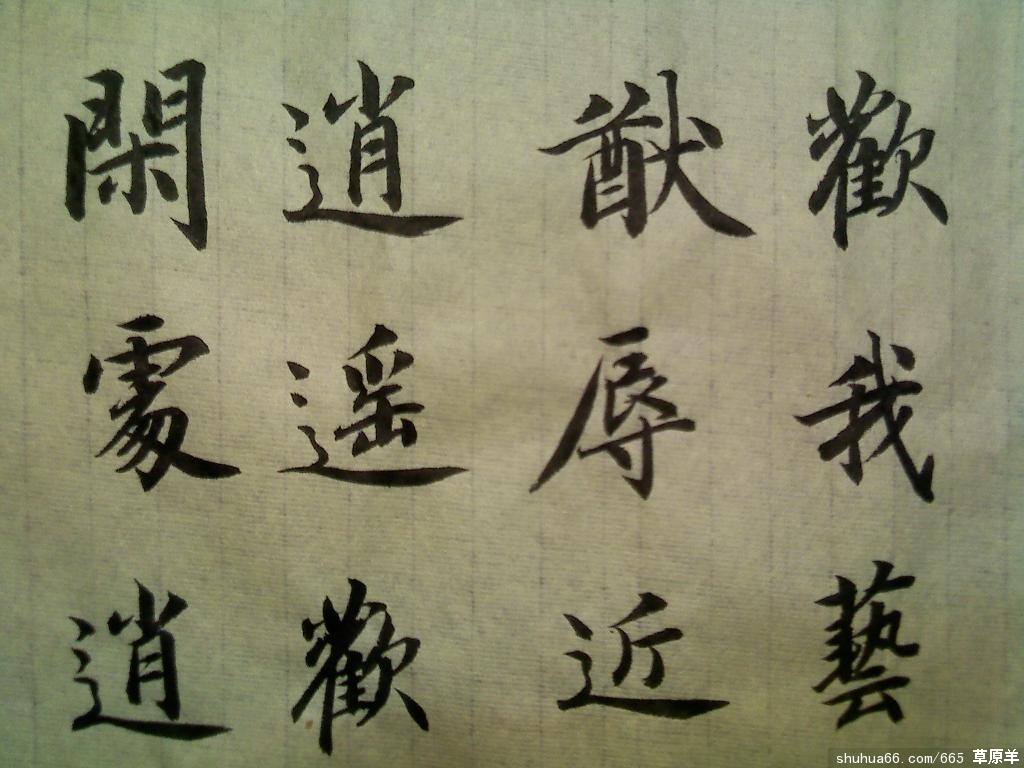 歡我藝
猷辱近
逍遥歡
閑處逍
shuhua66.com/665 草原羊